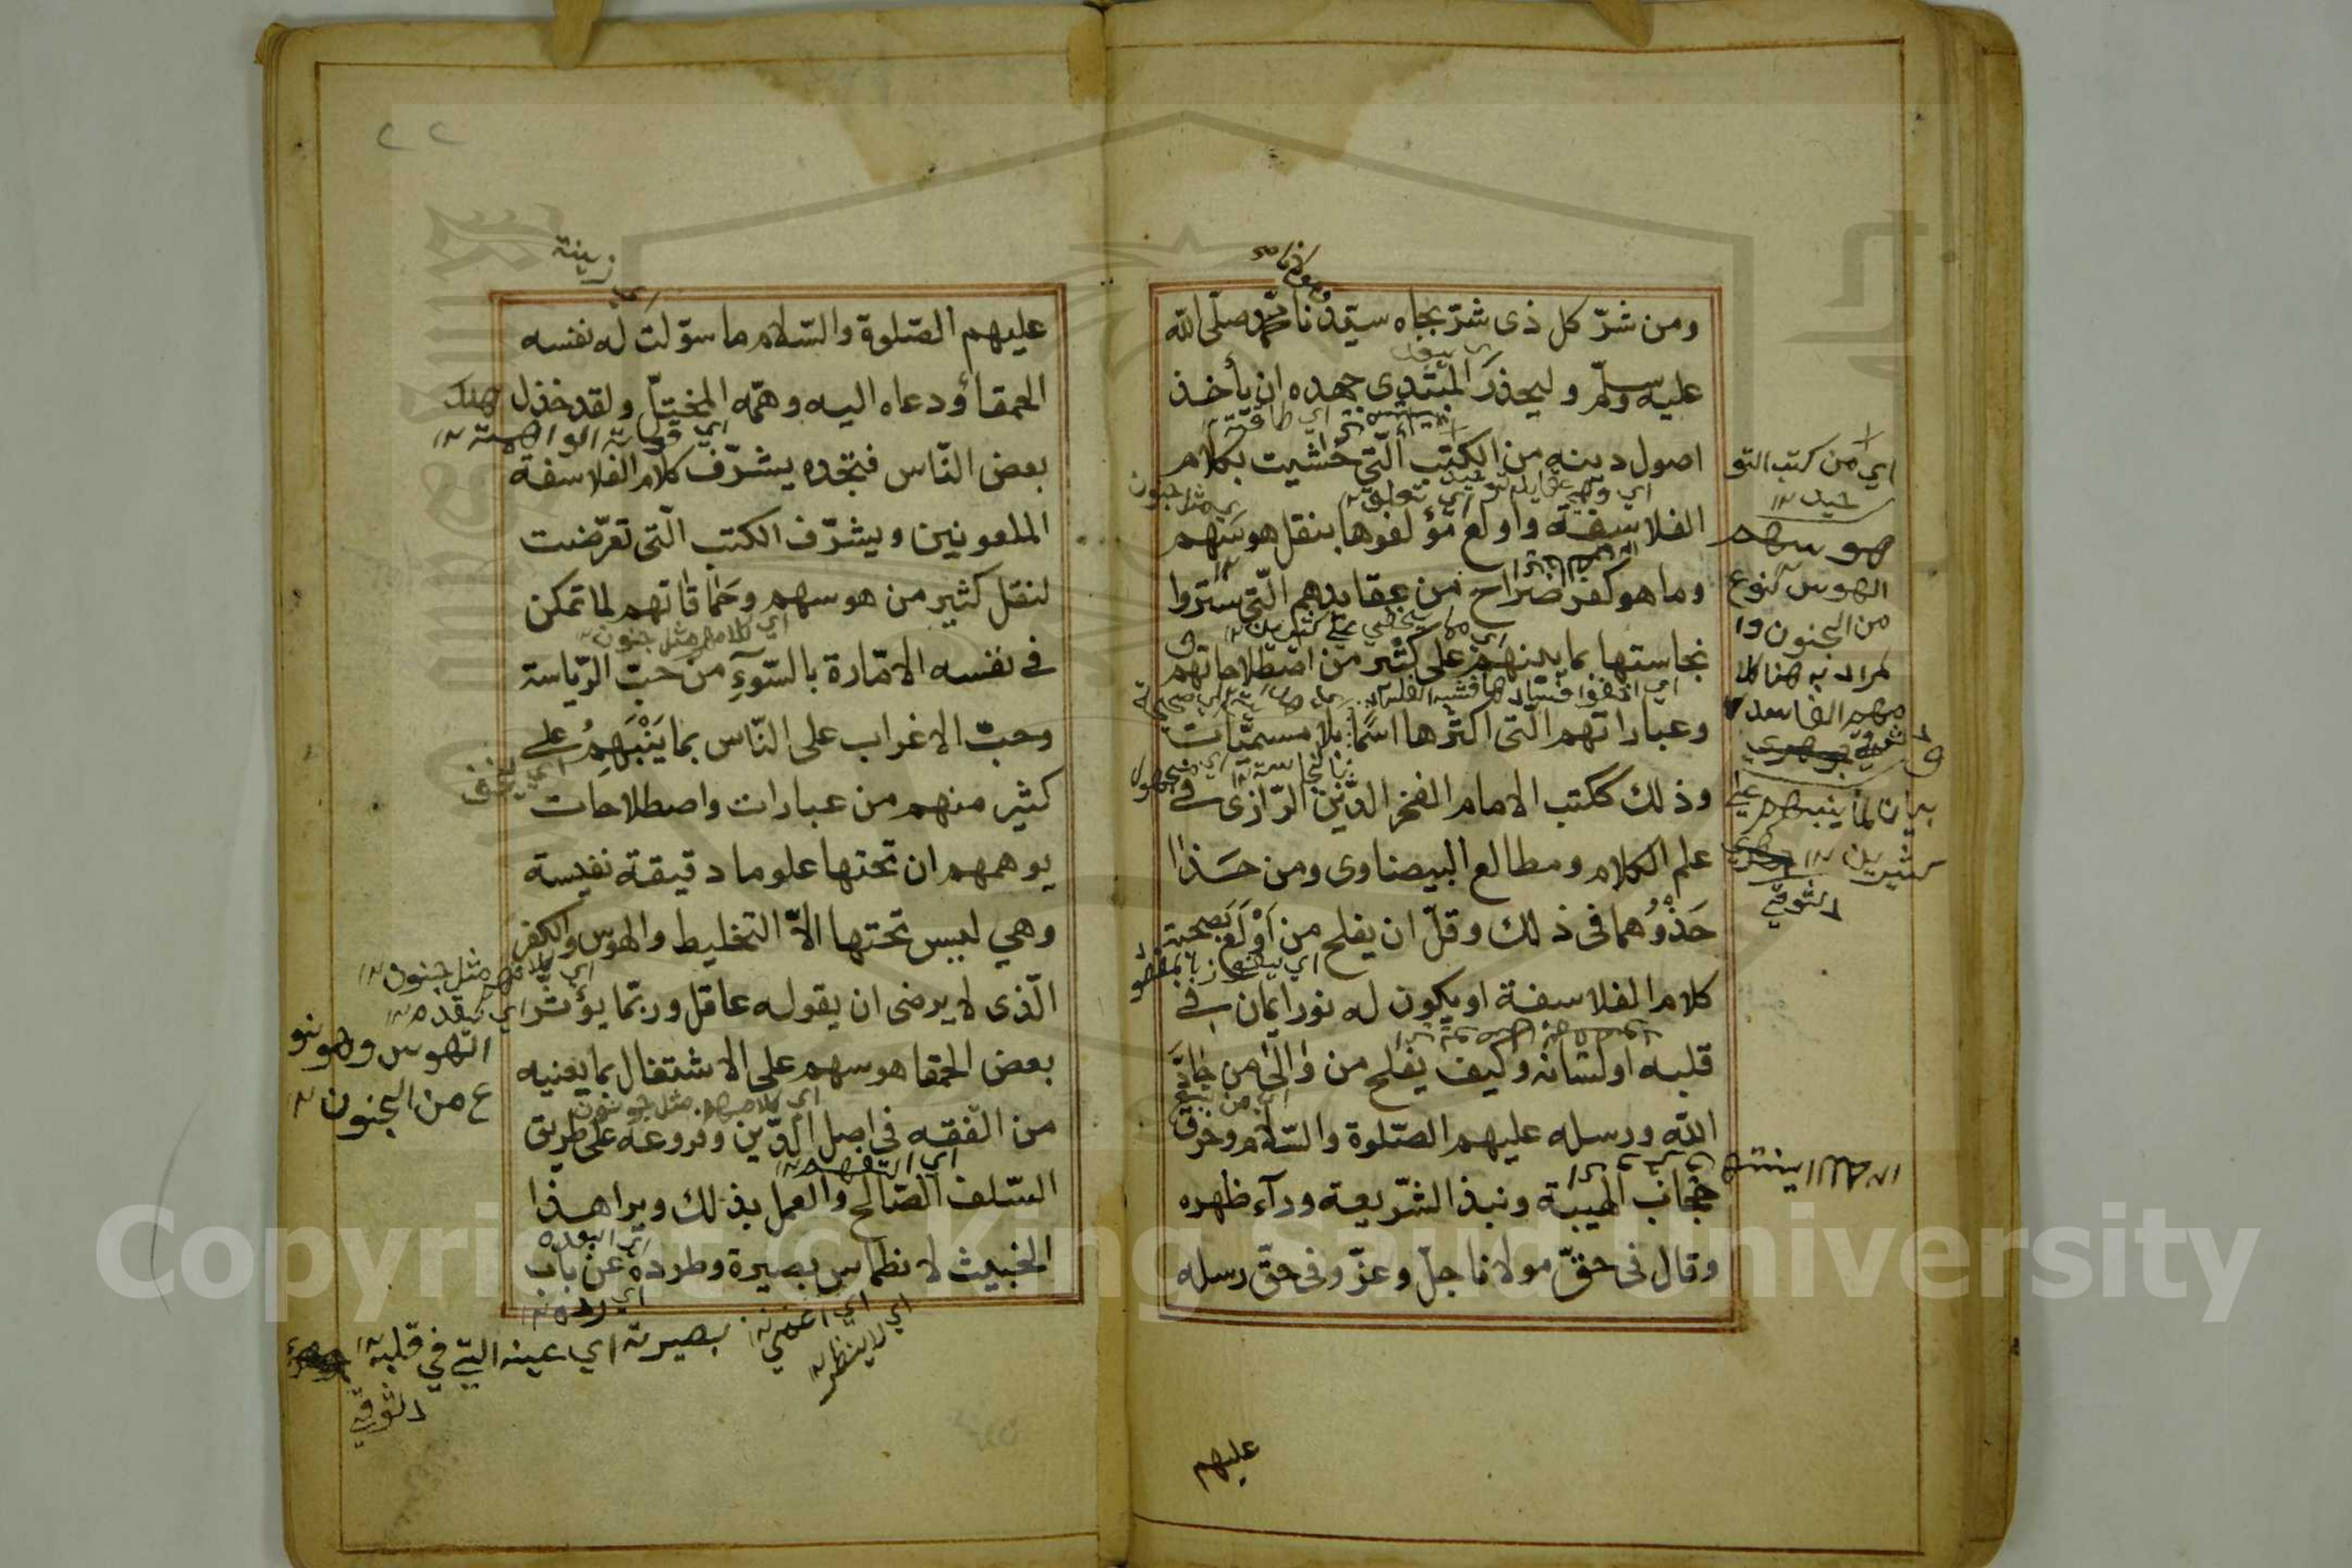 ومن شرّ كل ذى شرّ بجاه سيّدنا محمّد صلّى الله
عليه وسلّم وليحذر المبتدى جهده ان يأخذ
اصول دينه من الكتب الّتي حشيت بكلام
الفلاسفة واولع مؤلفوها بنقل هوسهم
وما هو كفر صراح من عقايدهم الّتي ستروا
نجاستها بما ينبهم على كثير من اصطلاحاتهم
وعباراتهم الّتى اكثرها اسما بلا مسميّات
وذلك ككتب الامام الفخر الدّين الرّازى في
علم الكلام ومطالع البيضاوى ومن حذا
حذوهما فى ذلك وقلّ ان يفلح من اولع بصحبة
كلام الفلاسفة او يكون له نور ايمان في
قلبه او لسانه وكيف يفلح من والى من حادّ
الله ورسله عليهم الصّلوة والسّلام وخرق
حجاب الهيبة ونبذ الشّريعة ورآء ظهره
وقال فى حقّ مولانا جلّ وعزّ وفى حقّ رسله
اي من كتب التو
حيد
هوسهم
الهوس نوع
من الجنون وا
لمراد به هنا كلا
مهم الفاسد
بيان لما ينبهم على
كثيرين
دسوقي
عليهم
٢٢
زينة
عليهم الصّلوة والسّلام ما سوّلت له نفسه
الحمقاؤ ودعاه اليه وهمّه المختلّ ولقد خذل
بعض النّاس فتجده يشرّف كلام الفلاسفة
الملعونين ويشرّف الكتب الّتى تعرّضت
لنقل كثير من هوسهم وحماقاتهم لما تمكن
في نفسه الامّارة بالسّوءِ من حبّ الرّياسة
وحبّ الاغراب على النّاس بما ينبهم على
كثير منهم من عبارات واصطلاحات
يوهمهم ان تحتها علوما دقيقة نفيسة
وهي ليس تحتها الاّ التخليط والهوس والكفر
الّذى لا يرضى ان يقوله عاقل وربّما يؤثر
بعض الحمقا هوسهم على الاشتغال بما يعنيه
من الفقه فى اصل الدّين وفروعه على طريق
السّلف الصّالح والعمل بذلك ويرا هذا
الخبيث لانطماس بصيرة وطرده عن باب
الهوس وهو نو
ع من الجنون
بصيرته اي عينه التي في قلبه
دسوقي